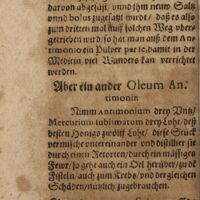 darvon abgesüst, vnnd ihm new Saltz
vnnd bolus zugesatzt wirdt / daß es also
zum dritten mal auff solchen Weg vber-
getrieben wird / so hat man auß dem An-
timonio ein Pulver per se, damit in der
Medicin viel Wunders kan verrichtet
werden.
Aber ein ander Oleum An-
timonii.
Nimm Antimonium drey Vntz /
Mercurium sublimatum drey Loht / deß
besten Honigs zwölff Loht / diese Stück
vermische vntereinander vnd distillier sie
durch einen Retorten / durch ein mässiges
Fewr / so geht auch ein Oel herüber / zu
Fisteln / auch zum Krebs / vnd dergleichen
Schäden / nützlich zugebrauchen.